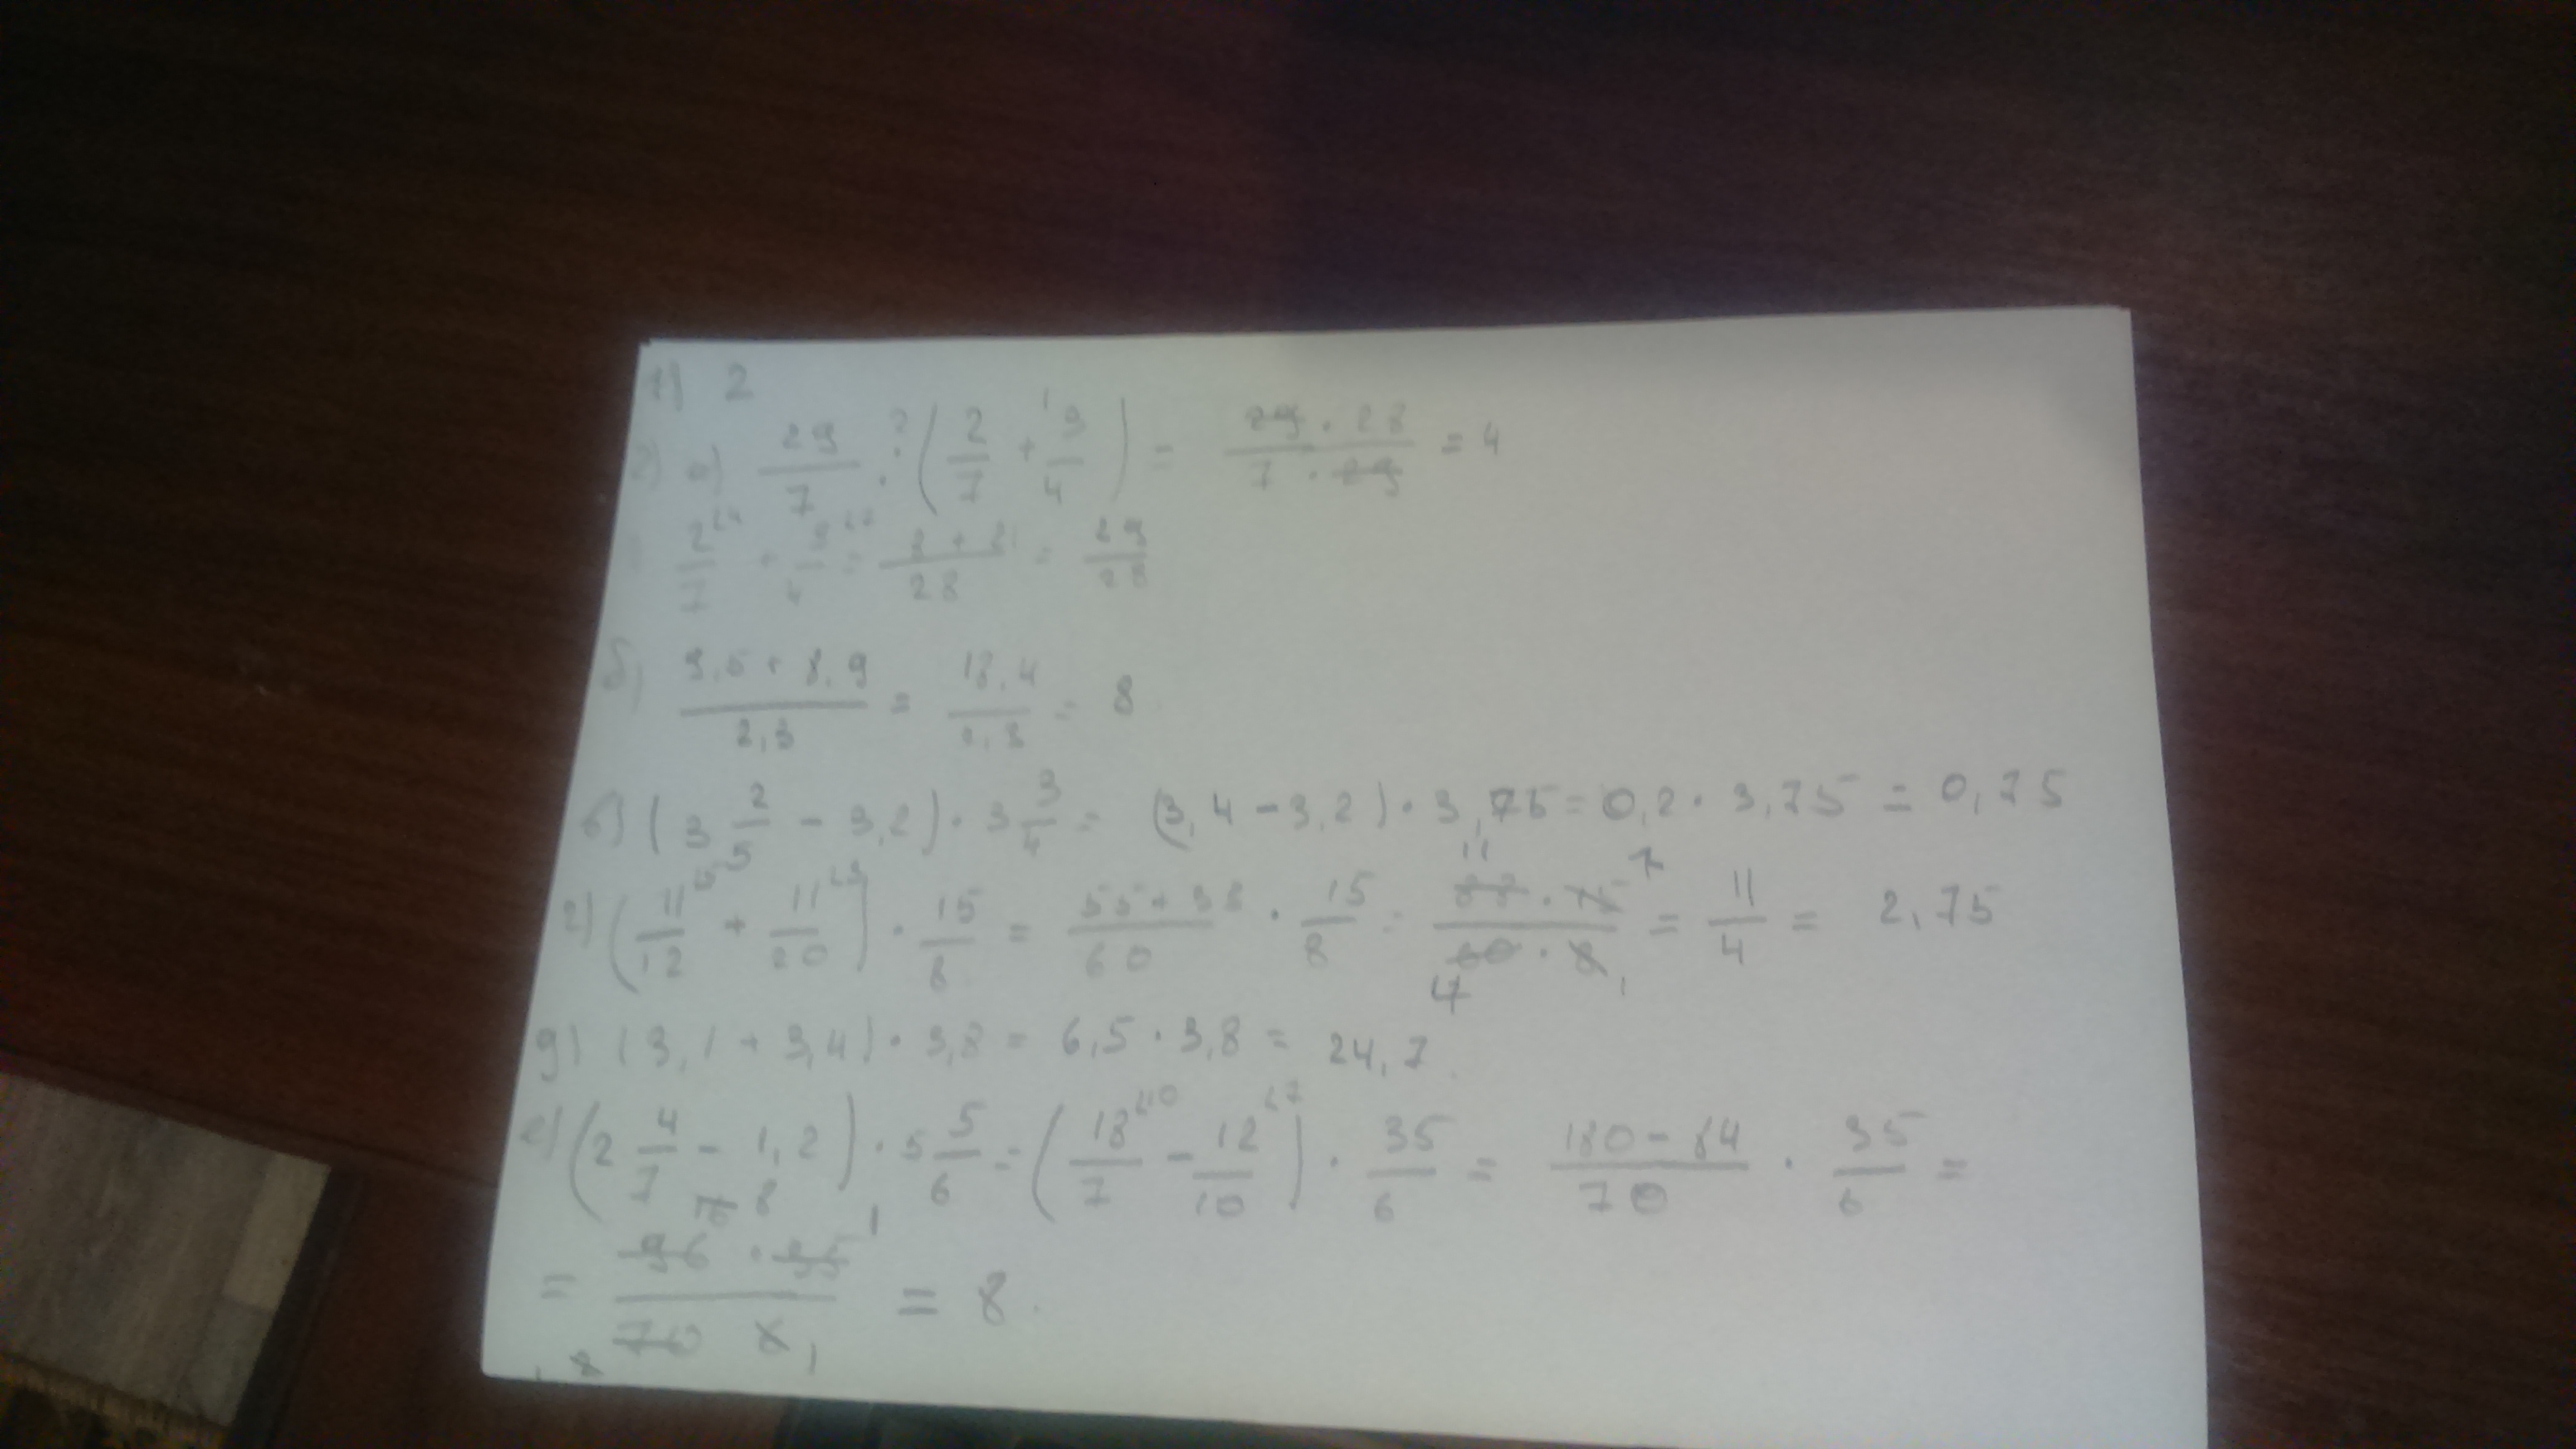 1) 2
2) а) 29/7 : (2/7 + 3/4) = 29 · 28 / 7 · 29 = 4
2/7 + 3/4 = 8 + 21 / 28 = 29/28
б) 9,5 + 8,9 / 2,3 = 18,4 / 2,3 = 8
в) (3 2/5 - 3,2) · 3 3/4 = (3,4 - 3,2) · 3,75 = 0,2 · 3,75 = 0,75
г) (11/12 + 11/20) · 15/8 = 55 + 33 / 60 · 15/8 = 88 · 15 / 60 · 8 = 11/4 = 2,75
д) (3,1 + 3,4) · 3,8 = 6,5 · 3,8 = 24,7
е) (2 4/7 - 1,2) · 5 5/6 = (18/7 - 12/10) · 35/6 = 180 - 84 / 70 · 35/6 =
= 96 · 35 / 70 6 = 8.